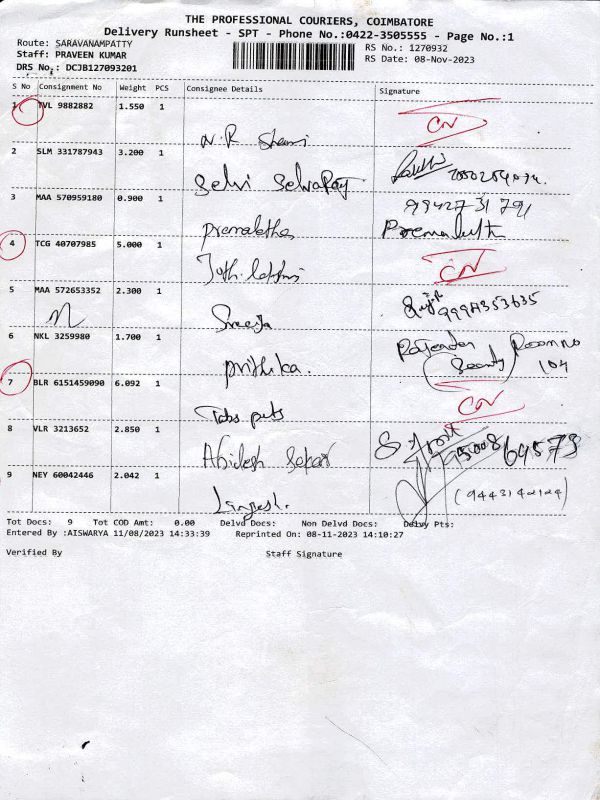 THE PROFESSIONAL COURIERS, COIMBATORE
Delivery Runsheet - SPT - Phone No.:0422-3505555 - Page No.:1
Route: SARAVANAMPATTY
RS No.: 1270932
Staff: PRAVEEN KUMAR
RS Date: 08-Nov-2023
DRS No.: DCJB127093201
S No Consignment No Weight PCS Consignee Details Signature
1 TVL 9882882 1.550 1 CN
N.R
2 SLM 331787943 3.200 1
Selvi Selvaraj
3 MAA 570959180 0.900 1 9942731791
Premalatha Premaluth
4 TCG 40707985 5.000 1 CN
5 MAA 572653352 2.300 1 9994353635
Sreeja
6 NKL 3259980 1.700 1 Rajendra Room no
Prithika. 104
7 BLR 6151459090 6.092 1 CN
Tabs pets
8 VLR 3213652 2.850 1
Abilesh Sekar
9 NEY 60042446 2.042 1 (9443142124)
Lingesh.
Tot Docs: 9 Tot COD Amt: 0.00 Delvd Docs: Non Delvd Docs: Delvy Pts:
Entered By :AISWARYA 11/08/2023 14:33:39 Reprinted On: 08-11-2023 14:10:27
Verified By Staff Signature